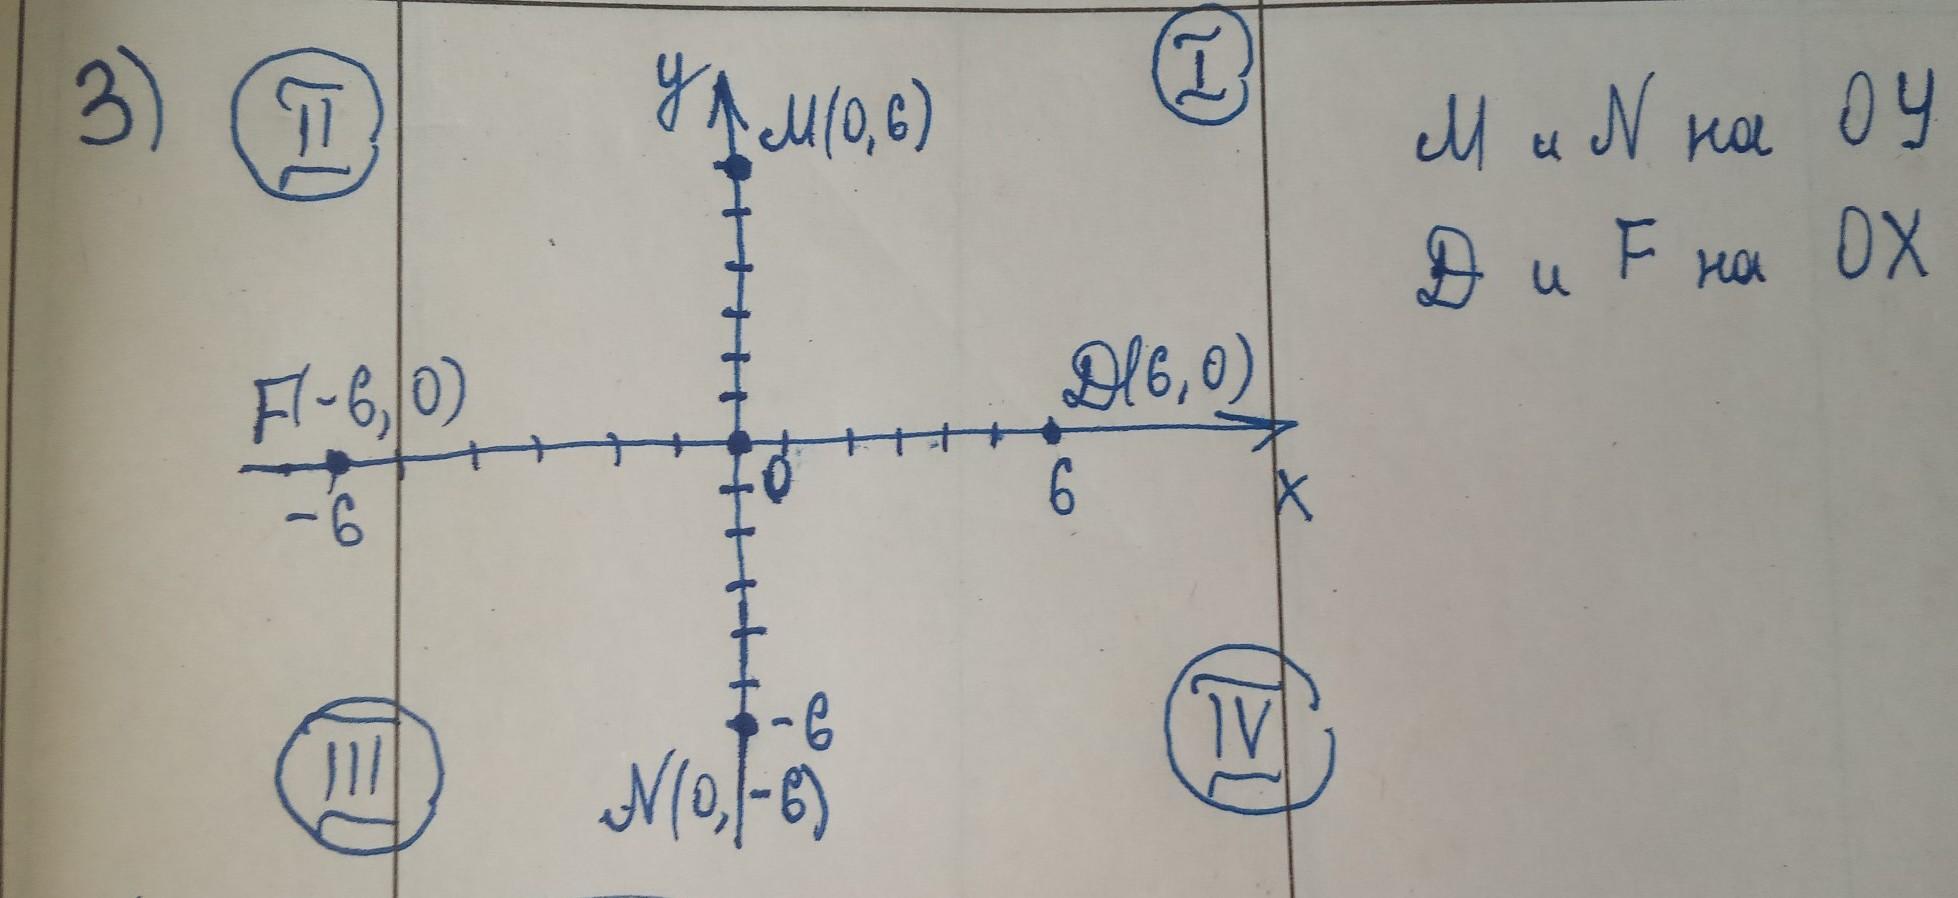 3)
II
I
y
M(0,6)
M и N на OY
D и F на OX
F(-6,0)
D(6,0)
-6
0
6
X
III
IV
-6
N(0,-6)